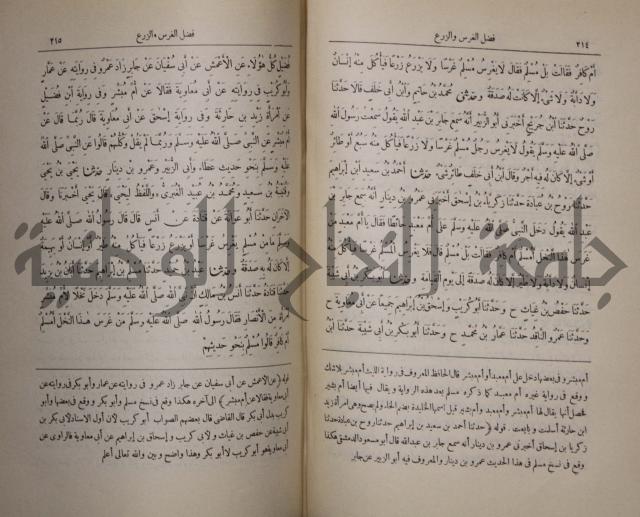 ٢١٤
فضل الغرس والزرع
أم كافر فقالت بل مسلم فقال لا يغرس مسلم غرسا ولا يزرع زرعا فيأكل منه إنسان
ولا دابة ولا شيء إلا كانت له صدقة وحدثني محمد بن حاتم وابن أبي خلف قالا حدثنا
روح حدثنا ابن جريج أخبرني أبو الزبير أنه سمع جابر بن عبد الله يقول سمعت رسول الله
صلى الله عليه وسلم يقول لا يغرس رجل مسلم غرسا ولا زرعا فيأكل منه سبع أو طائر
أو شيء إلا كان له فيه أجر وقال ابن أبي خلف طائر شيء حدثنا أحمد بن سعيد بن إبراهيم
حدثنا روح بن عبادة حدثنا زكرياء بن إسحق أخبرني عمرو بن دينار أنه سمع جابر بن
عبد الله يقول دخل النبي صلى الله عليه وسلم على أم معبد حائطا فقال يا أم معبد من
غرس هذا النخل أمسلم أم كافر فقالت بل مسلم قال فلا يغرس المسلم غرسا فيأكل منه
إنسان ولا دابة ولا طير إلا كان له صدقة إلى يوم القيامة وحدثنا أبو بكر بن أبي شيبة
حدثنا حفص بن غياث ح وحدثنا أبو كريب وإسحق بن إبراهيم جميعا عن أبي معاوية ح
وحدثنا عمرو الناقد حدثنا عمار بن محمد ح وحدثنا أبو بكر بن أبي شيبة حدثنا ابن
أم مبشر وفي بعضها دخل على أم معبد أو أم مبشر قال الحافظ المعروف في رواية الليث أم مبشر بلا شك
ووقع في رواية غيره أم معبد كما ذكره مسلم بعد هذه الرواية ويقال فيها أيضا أم بشير
فحصل أنها يقال لها أم مبشر وأم معبد وأم بشير قيل اسمها الخليدة بضم الخاء ولم يصح وهي امرأة زيد
ابن حارثة أسلمت وبايعت . قوله (حدثنا أحمد بن سعيد بن إبراهيم حدثنا روح بن عبادة حدثنا
زكريا بن إسحاق أخبرني عمرو بن دينار أنه سمع جابر بن عبد الله قال أبو مسعود الدمشقي هكذا
وقع في نسخ مسلم في هذا الحديث عمرو بن دينار والمعروف فيه أبو الزبير عن جابر
فضل الغرس والزرع
٢١٥
فضيل كل هؤلاء عن الأعمش عن أبي سفيان عن جابر زاد عمرو في روايته عن عمار
وأبو كريب في روايته عن أبي معاوية فقالا عن أم مبشر وفي رواية ابن فضيل
عن امرأة زيد بن حارثة وفي رواية إسحق عن أبي معاوية قال ربما قال عن
أم مبشر عن النبي صلى الله عليه وسلم وربما لم يقل وكلهم قالوا عن النبي صلى الله
عليه وسلم بنحو حديث عطاء وأبي الزبير وعمرو بن دينار حدثنا يحيى بن يحيى
وقتيبة بن سعيد ومحمد بن عبيد الغبري واللفظ ليحيى قال يحيى أخبرنا وقال
الآخران حدثنا أبو عوانة عن قتادة عن أنس قال قال رسول الله صلى الله عليه
وسلم ما من مسلم يغرس غرسا أو يزرع زرعا فيأكل منه طير أو إنسان أو بهيمة
إلا كان له به صدقة وحدثنا عبد بن حميد حدثنا مسلم بن إبراهيم حدثنا أبان بن يزيد
حدثنا قتادة حدثنا أنس بن مالك أن نبي الله صلى الله عليه وسلم دخل نخلا لأم مبشر
امرأة من الأنصار فقال رسول الله صلى الله عليه وسلم من غرس هذا النخل أمسلم
أم كافر قالوا مسلم بنحو حديثهم
قوله (عن الأعمش عن أبي سفيان عن جابر زاد عمرو في روايته عن عمار وأبو بكر في روايته عن
أبي معاوية فقالا عن أم مبشر) إلى آخره هكذا وقع في نسخ مسلم وأبو بكر ووقع في بعضها وأبو
كريب بدل أبي بكر قال القاضي قال بعضهم الصواب أبو كريب لأن أول الاسناد لأبي بكر
ابن أبي شيبة عن حفص بن غياث ولأبي كريب وإسحاق بن إبراهيم عن أبي معاوية فالراوي عن
أبي معاوية هو أبو كريب لا أبو بكر وهذا واضح وبين والله تعالى أعلم
جامعة النجاح الوطنية